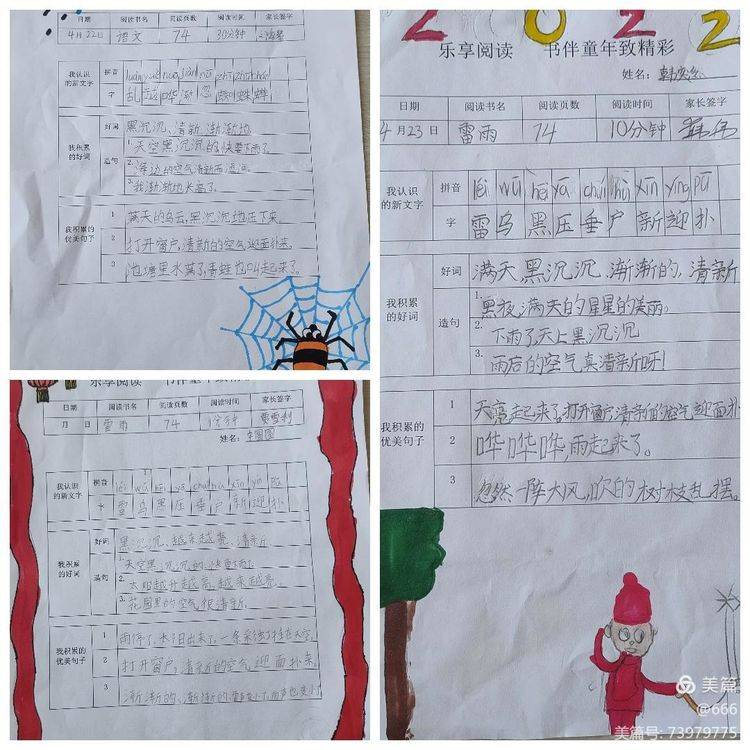 日期 阅读书名 阅读页数 阅读时间 家长签字
4月22日 语文 74 30分钟
我认识的新文字 拼音
字 乱 哗 渐 忽 蜘蛛 蝉
我积累的好词 好词 黑沉沉、清新、渐渐地
造句 1.天空黑沉沉的快要下雨了。
2.的空气清新
3.我渐渐地长高了。
我积累的优美句子 1 满天的乌云,黑沉沉地压下来。
2 打开窗户,清新的空气迎面扑来。
3 池塘里水满了,青蛙也叫起来了。
乐享阅读 书伴童年致精彩
日期 阅读书名 阅读页数 阅读时间 家长签字
月 日 雷雨 74 分钟
姓名:
我认识的新文字 拼音 léi wū hēi yā chuí hù xīn yín pū
字 雷 乌 黑 压 垂 户 新 迎 扑
我积累的好词 好词 黑沉沉 越来越亮 清新
造句 1.天空黑沉沉的,快要下雨了。
2.太阳越升越高,越来越亮。
3.花园里的空气很清新。
我积累的优美句子 1 雨停了,太阳出来了,一条彩虹挂在天空。
2 打开窗户,清新的空气迎面扑来。
3 渐渐的,渐渐的雷声小了,雨声也小了
2022
乐享阅读 书伴童年致精彩
姓名:
日期 阅读书名 阅读页数 阅读时间 家长签字
4月23日 雷雨 74 10分钟
我认识的新文字 拼音 léi wū hēi yā chuí hù xīn yíng pū
字 雷 乌 黑 压 垂 户 新 迎 扑
我积累的好词 好词 满天 黑沉沉 渐渐的,清新
造句 1.黑夜满天的星星的美丽。
2.下雨了天上黑沉沉
3.雨后的空气真清新呀!
我积累的优美句子 1 天亮起来了,打开窗户清新的空气迎面扑
2 哗,哗,哗,雨起来了。
3 忽然一阵大风,吹的树枝乱摆。
美篇
@666
美篇号:73979775